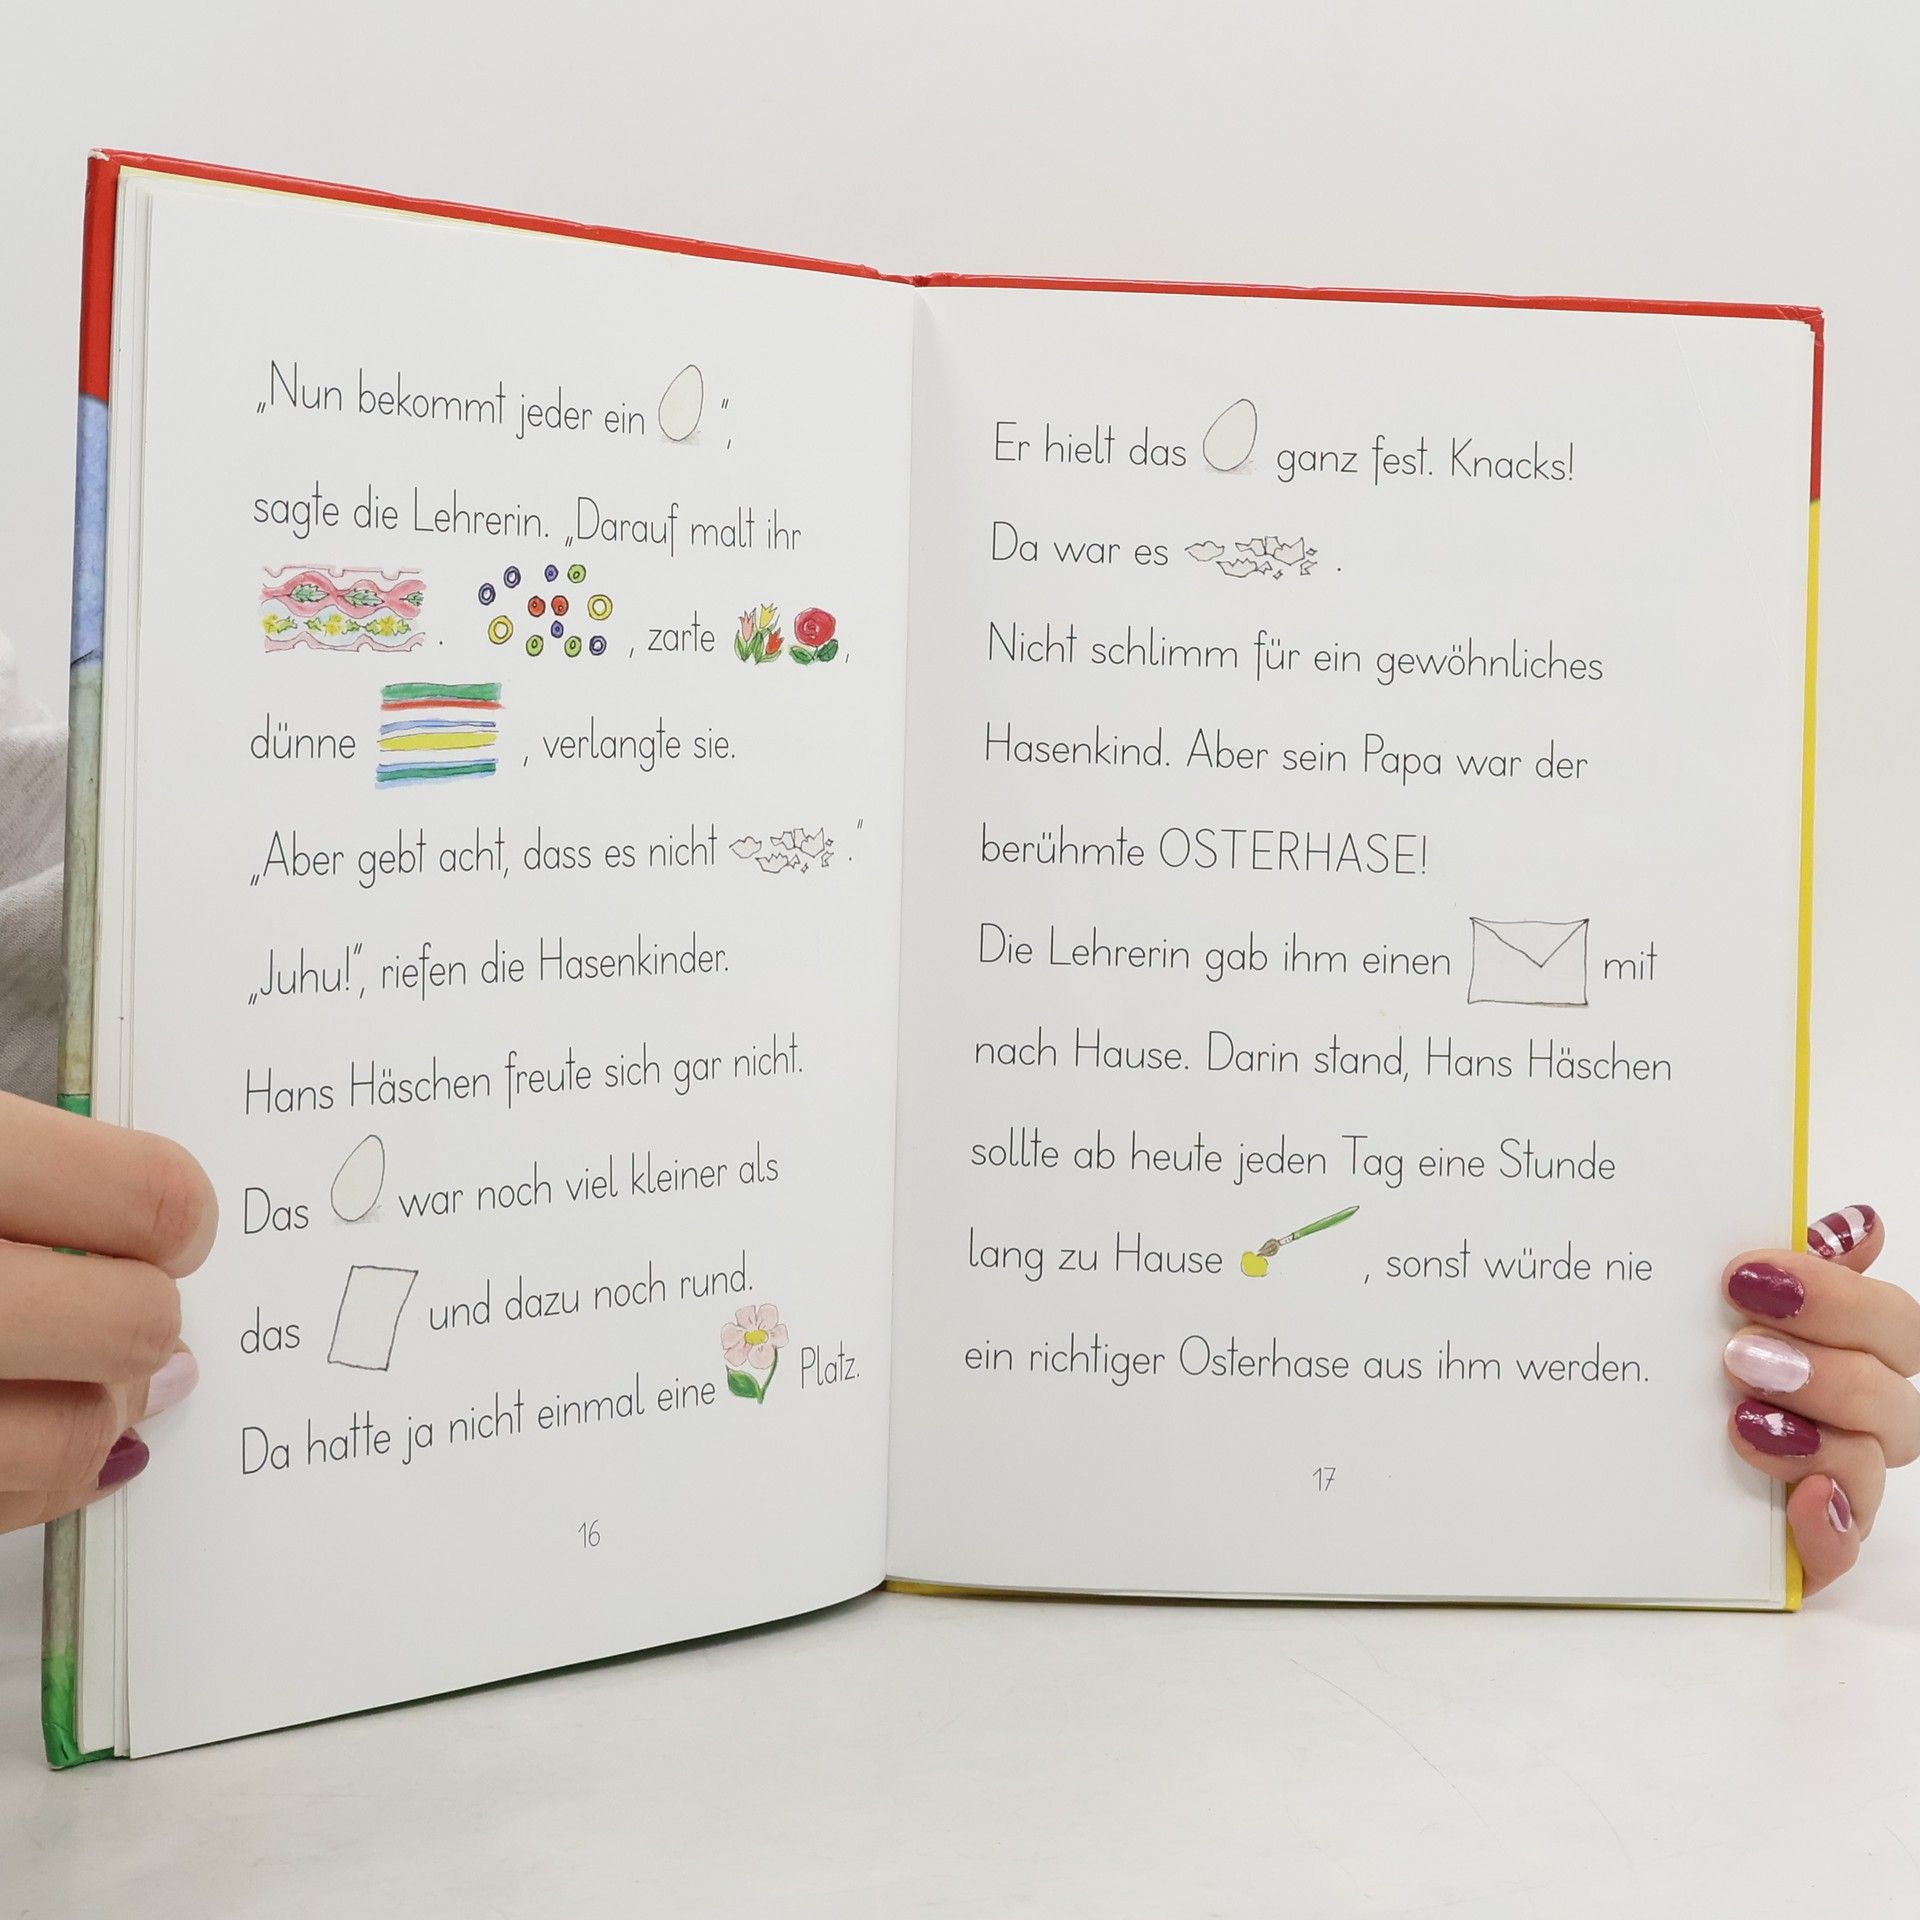 „Nun bekommt jeder ein “,
sagte die Lehrerin. „Darauf malt ihr
. , zarte ,
dünne , verlangte sie.
„Aber gebt acht, dass es nicht .“
„Juhu!“, riefen die Hasenkinder.
Hans Häschen freute sich gar nicht.
Das war noch viel kleiner als
das und dazu noch rund.
Da hatte ja nicht einmal eine Platz.
16
Er hielt das ganz fest. Knacks!
Da war es .
Nicht schlimm für ein gewöhnliches
Hasenkind. Aber sein Papa war der
berühmte OSTERHASE!
Die Lehrerin gab ihm einen mit
nach Hause. Darin stand, Hans Häschen
sollte ab heute jeden Tag eine Stunde
lang zu Hause , sonst würde nie
ein richtiger Osterhase aus ihm werden.
17